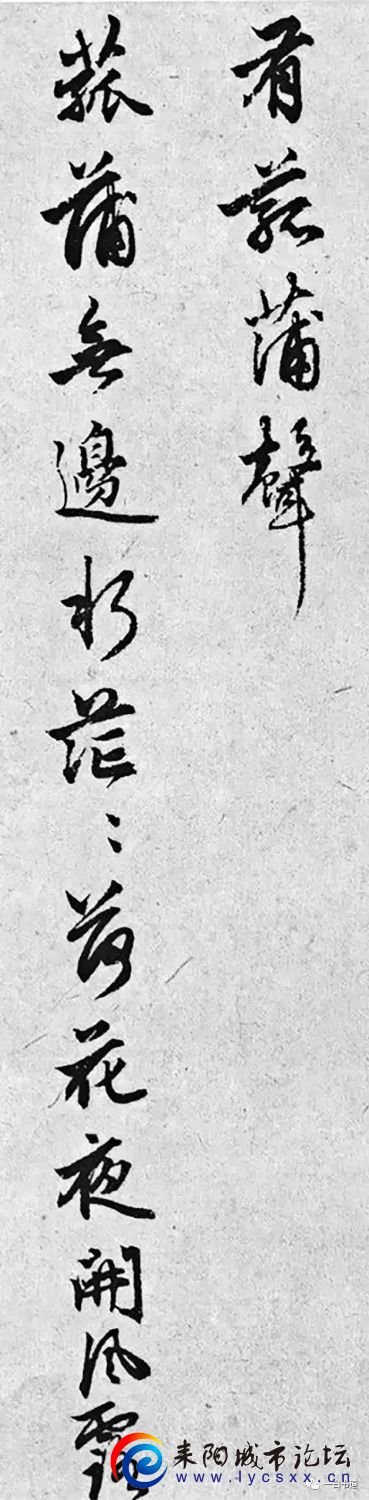 有菰蒲聲
菰蒲無邊水茫〻荷花夜開風露
耒阳城市论坛
www.lycsxx.cn
一白书道